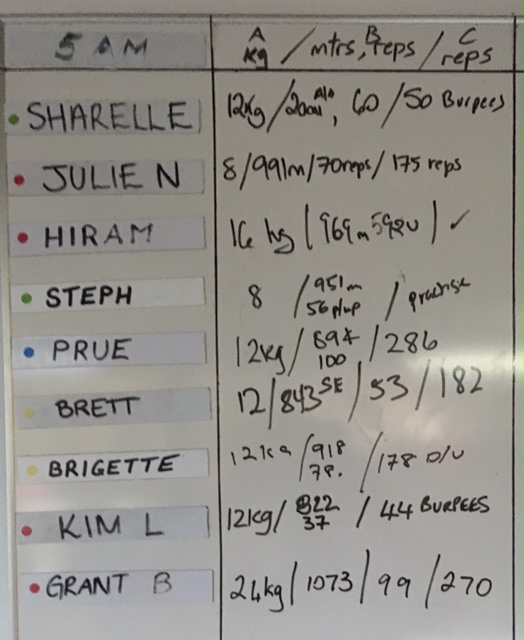 5 AM A kg / mtrs, B reps / C reps
SHARELLE 12kg / , 60 / 50 Burpees
JULIE N 8/991m/70reps/175 reps
HIRAM 16 kg ( 969m ) ✓
STEPH 8 / 951m 56 / practise
PRUE 12kg / 100 / 286
BRETT 12/843 SE / 53 / 182
BRIGETTE 12kg / 918 78. / 178 D/U
KIM L 12kg / 822 37 / 44 BURPEES
GRANT B 24kg / 1073 / 99 / 270